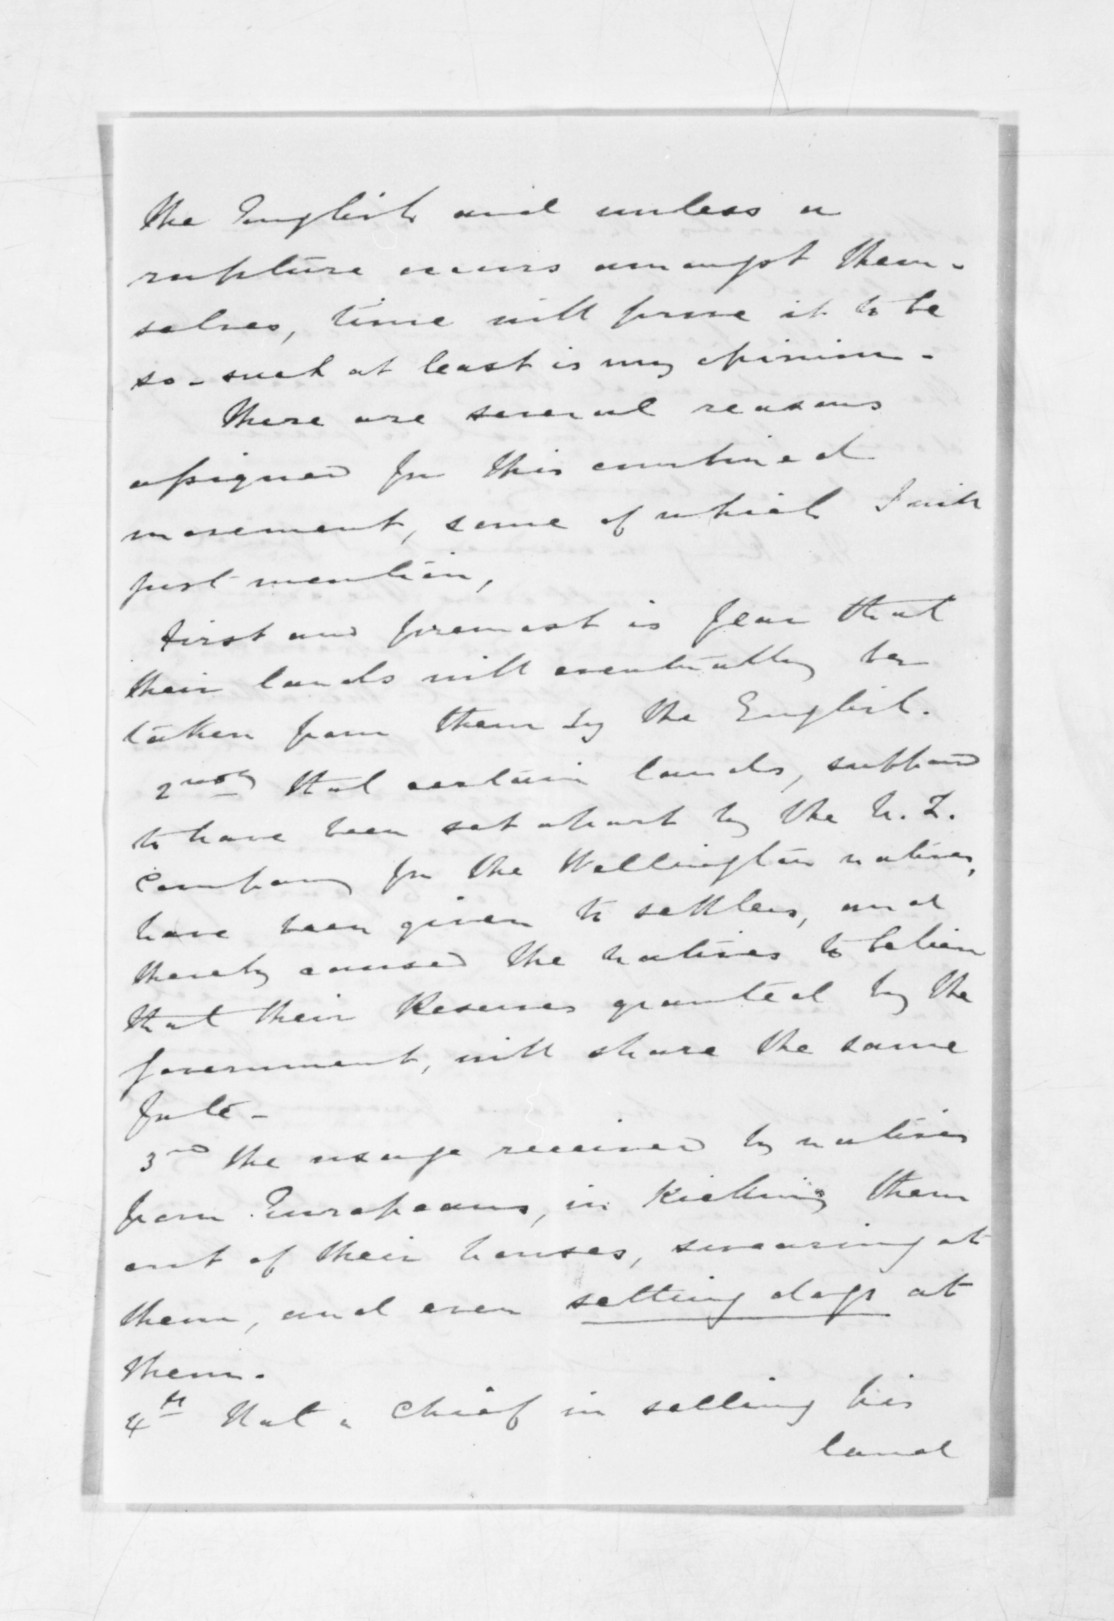 the English and unless a
rupture occurs amongst them-
selves, time will prove it to be
so - such at least is my opinion -
There are several reasons
assigned for this combined
movement, some of which I will
just mention,
First and foremost is fear that
their lands will eventually be
taken from them by the English.
2ndly That certain lands, supposed
to have been set apart by the N. Z.
Company for the Wellington natives,
have been given to settlers, and
thereby caused the natives to believe
that their Reserves granted by the
Government, will share the same
fate -
3rd The usage received by natives
from Europeans, in kicking them
out of their houses, swearing at
them, and even setting dogs at
them.
4th That a Chief in selling his
land